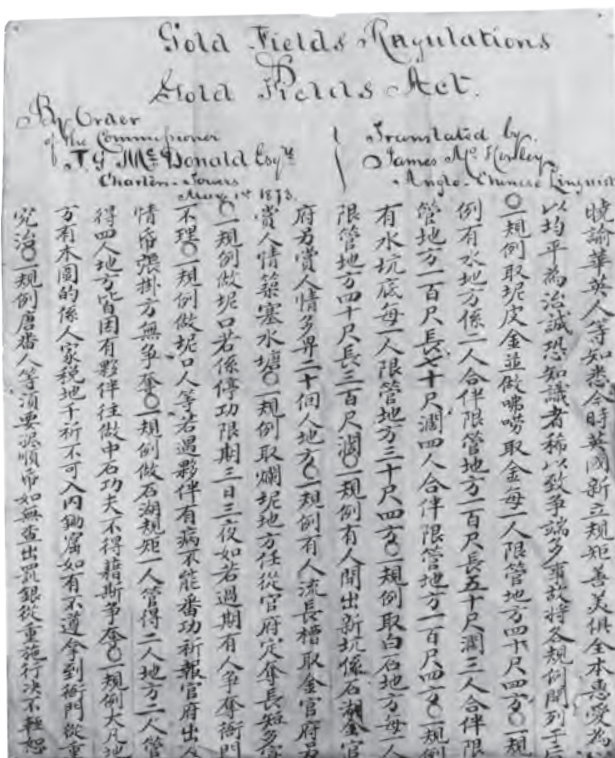 Gold Fields Regulations
&
Gold Fields Act.
By Order
of the Commissioner
T. G. McDonald Esqre
Charters-Towers
May 1st 1873.
Translated by
James Mc Henley
Anglo-Chinese Linguist
曉諭華英人等知悉今時英國新立規矩善美俱全本憙愛為
以均平為治誠恐知識者稀以致爭端多事故將各規例開列于后
〇一規例取坭皮金並做咈嘮取金每一人限管地方四十尺四方〇一規
例有水地方係二人合伴限管地方一百尺長五十尺濶三人合伴限
管地方一百尺長七十尺濶四人合伴限管地方一百尺四方〇一規例
有水坑底每一人限管地方三十尺四方〇一規例取白石地方每一人
限管地方四十尺長三百尺濶〇一規例有人開出新坑係石湖金官
府另賞人情多畀二十個人地方〇一規例有人流長槽取金官府另
賞人情築塞水塘〇一規例取爛坭地方任從官府定奪長短多寡
〇一規例做坭口若係停功限期三日三夜如若過期有人爭奪衙門
不理〇一規例做坭口人等若遇夥伴有病不能番功祈報官府出人
情帋張掛方無爭奪〇一規例做石湖規矩一人管得二人地方二人管
得四人地方皆因有夥伴往做中石功夫不得藉斯爭奪〇一規例大凡地
方有木圍的係人家稅地千祈不可入內鋤窟如有不遵拿到衙門從重
究治〇一規例唐番人等須要泥順帋如無查出罰銀從重施行决不輕恕